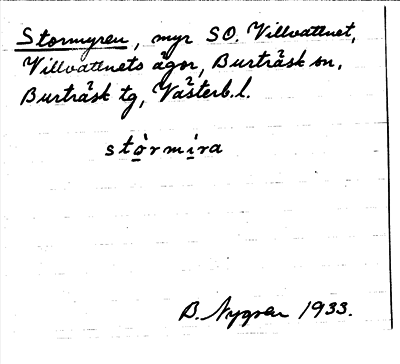 Stormyren, myr SO. Villvattnet,
Villvattnets ägor, Burträsk sn,
Burträsk tg, Västerb.l.
stò̱rmi̱ra
B. Nygren 1933.